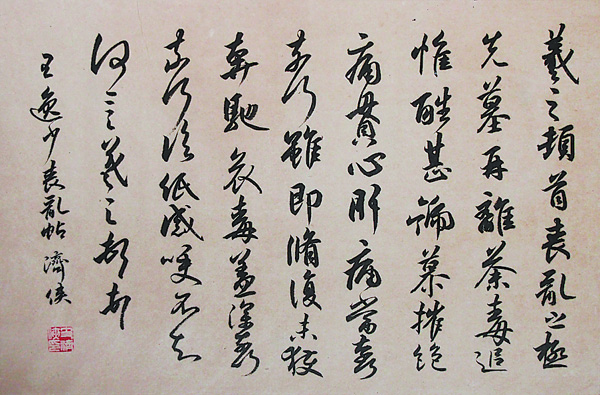 羲之頓首喪亂之極
先墓再離荼毒追
惟酷甚號慕摧絕
痛貫心肝痛當奈何
奈何雖即脩復未獲
奔馳哀毒益深奈何
奈何臨紙感哽不知
何言羲之頓首
王逸少喪亂帖 濟俠